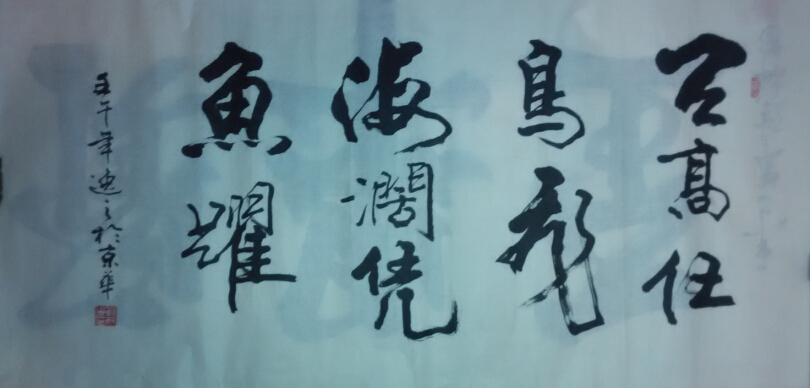 天高任
鳥飛
海濶凭
魚躍
壬午年迪之於京華